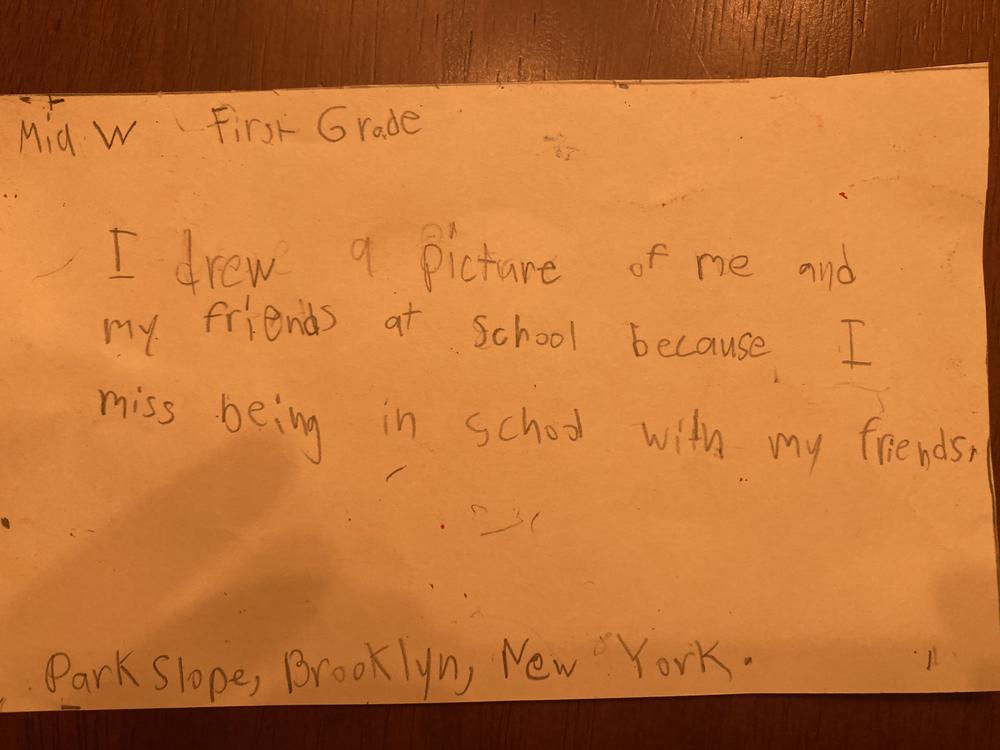 Mia W First Grade
I drew a picture of me and
my friends at school because I
miss being in school with my friends.
Park Slope, Brooklyn, New York.